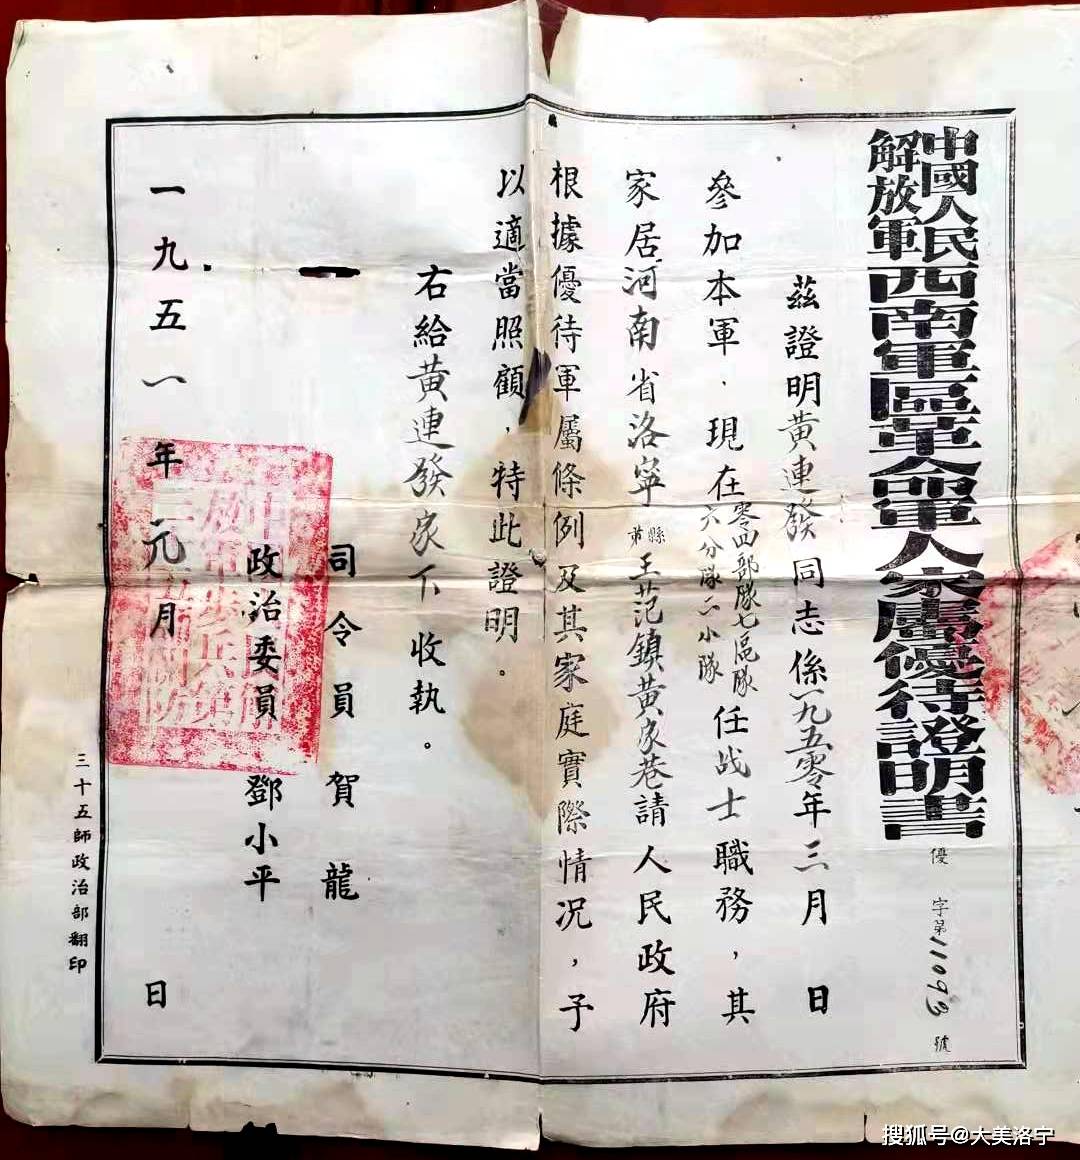 中國人民
解放軍
西南軍區革命軍人家屬優待證明書
優字第11093號
茲證明黃連發同志係一九五零年三月 日
參加本軍．現在零四部隊七區隊
六分隊二小隊
任战士職務，其
家居河南省洛寧縣
第
王范鎮黃家巷請人民政府
根據優待軍屬條例及其家庭實際情況，予
以適當照顧，特此證明。
右給黃連發家下收執。
司令員賀龍
政治委員鄧小平
一九五一年元月 日
三十五師政治部翻印
搜狐号@大美洛宁